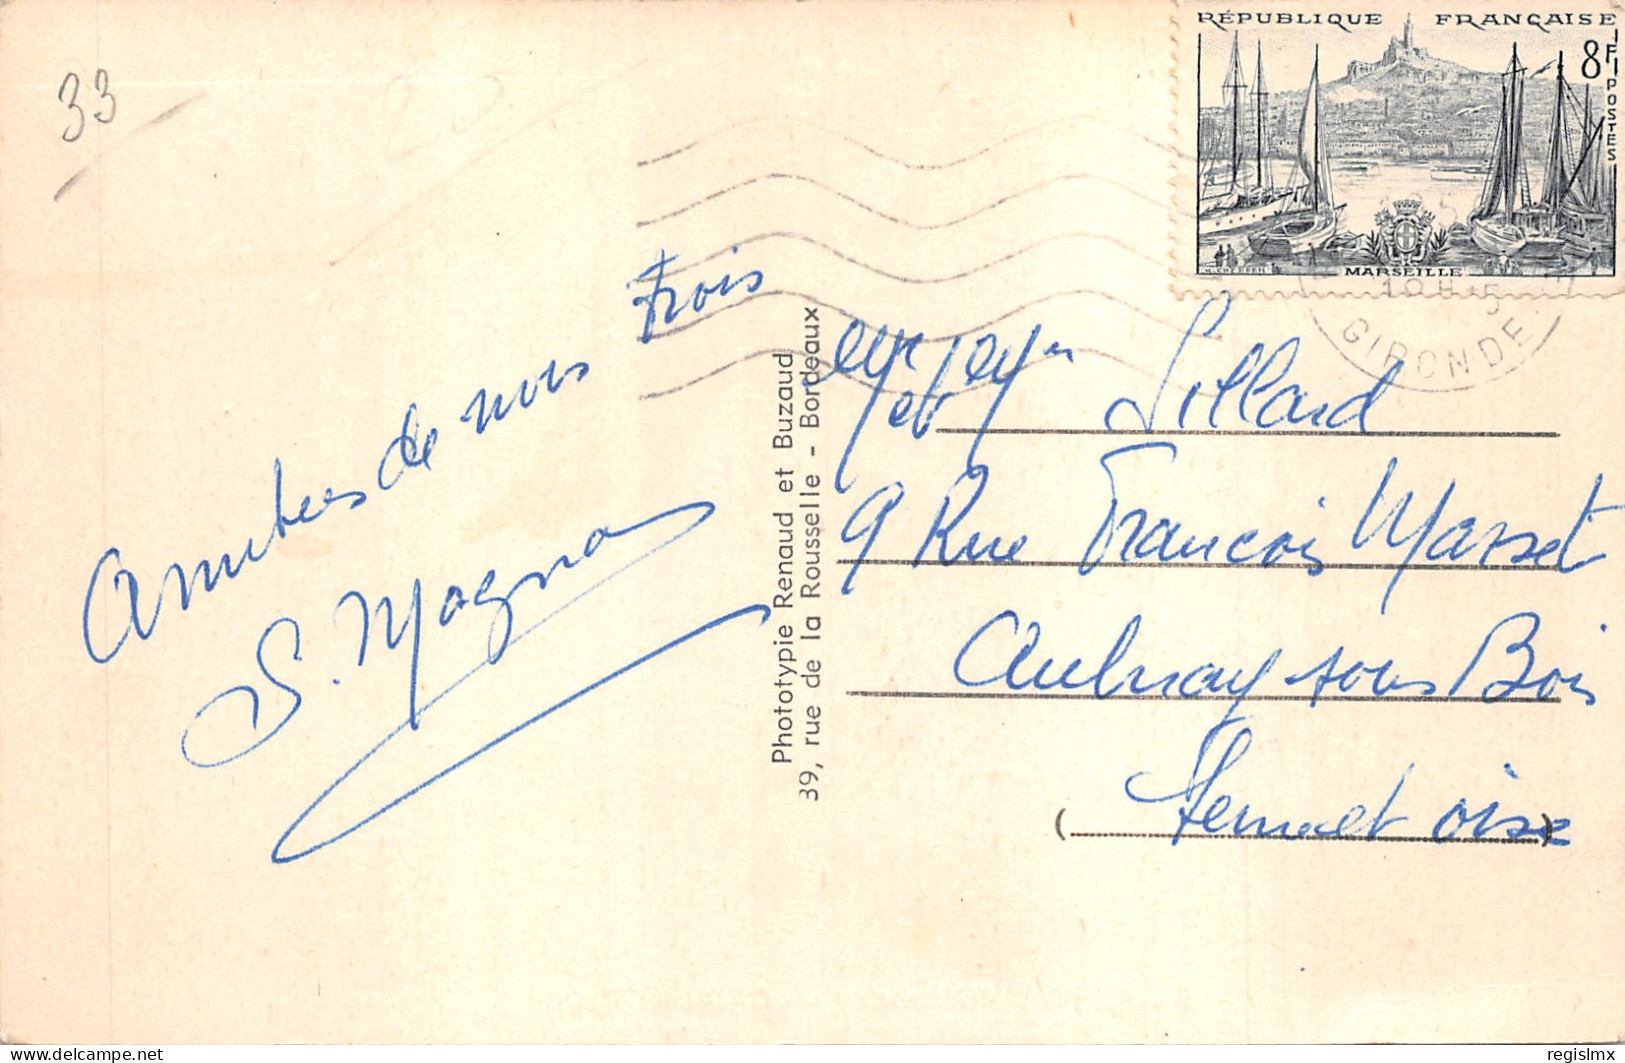 33
RÉPUBLIQUE FRANÇAISE
8F
POSTES
MARSEILLE
GIRONDE
Amitiés de nous Trois
S. Magna
Photot​ypie Renaud et Buzaud
39, rue de la Rousselle - Bordeaux
et Sillard
9 Rue Francois Masset
Aulnay sous Bois
(Seine et oise)
delcampe.net
regislmx